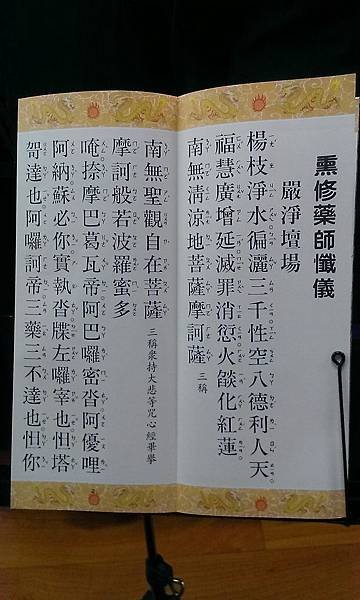 熏修藥師懺儀
嚴淨壇場
楊枝淨水徧灑三千性空八德利人天
福慧廣增延滅罪消愆火燄化紅蓮
南無清涼地菩薩摩訶薩 三稱
南無聖觀自在菩薩 三稱衆持大悲等咒心經畢舉
摩訶般若波羅蜜多
唵捺摩巴葛瓦帝阿巴囉密沓阿優哩
阿納蘇必你實執沓牒左囉宰也怛塔
哿達也阿囉訶帝三藥三不達也怛你